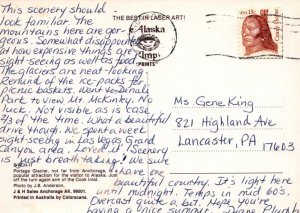 This scenery should
look familiar. The
mountains here are gor-
geous. Somewhat disappointed
at how expensive things are,
sight-seeing as well as food.
The glaciers are neat-looking.
Remind of the ice-packs for
picnic baskets. Went to Denali
Park to view Mt. McKinley. No
luck. Not visible, as is case
2/3 of the time. What a beautiful
drive though. We spent a week
sight seeing in Las Vegas Grand
Canyon area. Loved it. Scenery
is just breath taking! We sure
have one
beautiful country. It's light here
until midnight. Temps in mid 60s.
Overcast quite a bit. Hope you're
having a nice summer.
THE BEST IN LASER ART!
Alaska
PRINTS
USA 15c
Ms. Gene King
821 Highland Ave
Lancaster, PA
17603
Portage Glacier, not far from Anchorage,
popular attraction for the visitor to Alaska
off the turn again arm of the Cook Inlet.
Photo by J.B. Anderson.
J & H Sales Anchorage AK. 99501.
Printed in Australia by Colorscans.